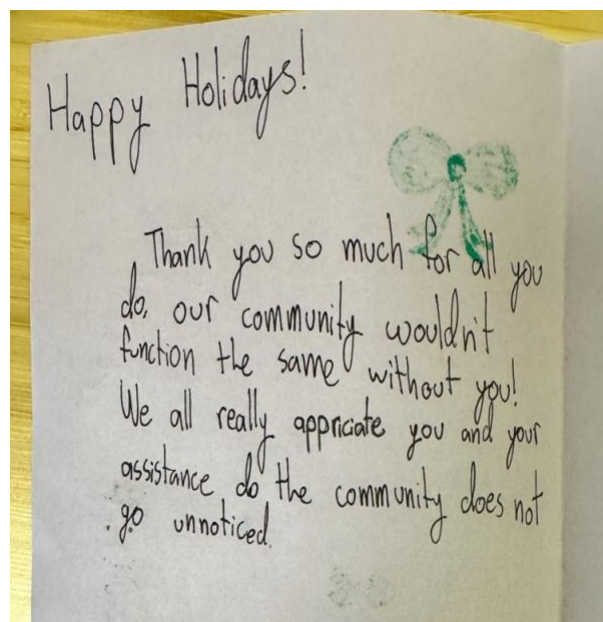 Happy Holidays!
Thank you so much for all you
do, our community wouldn't
function the same without you!
We all really appriciate you and your
assistance do the community does not
go unnoticed.